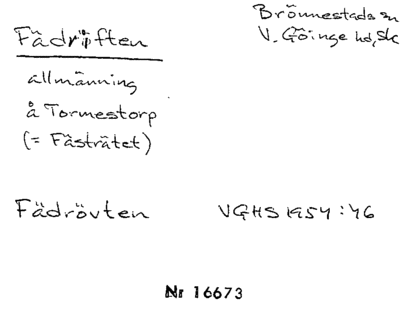 Brönnestads sn
Fädriften
V. Göinge hd, Sk
allmänning
å Tormestorp
(= Fästrätet)
Fädrövten VGHS 1954:46
Nr 16673